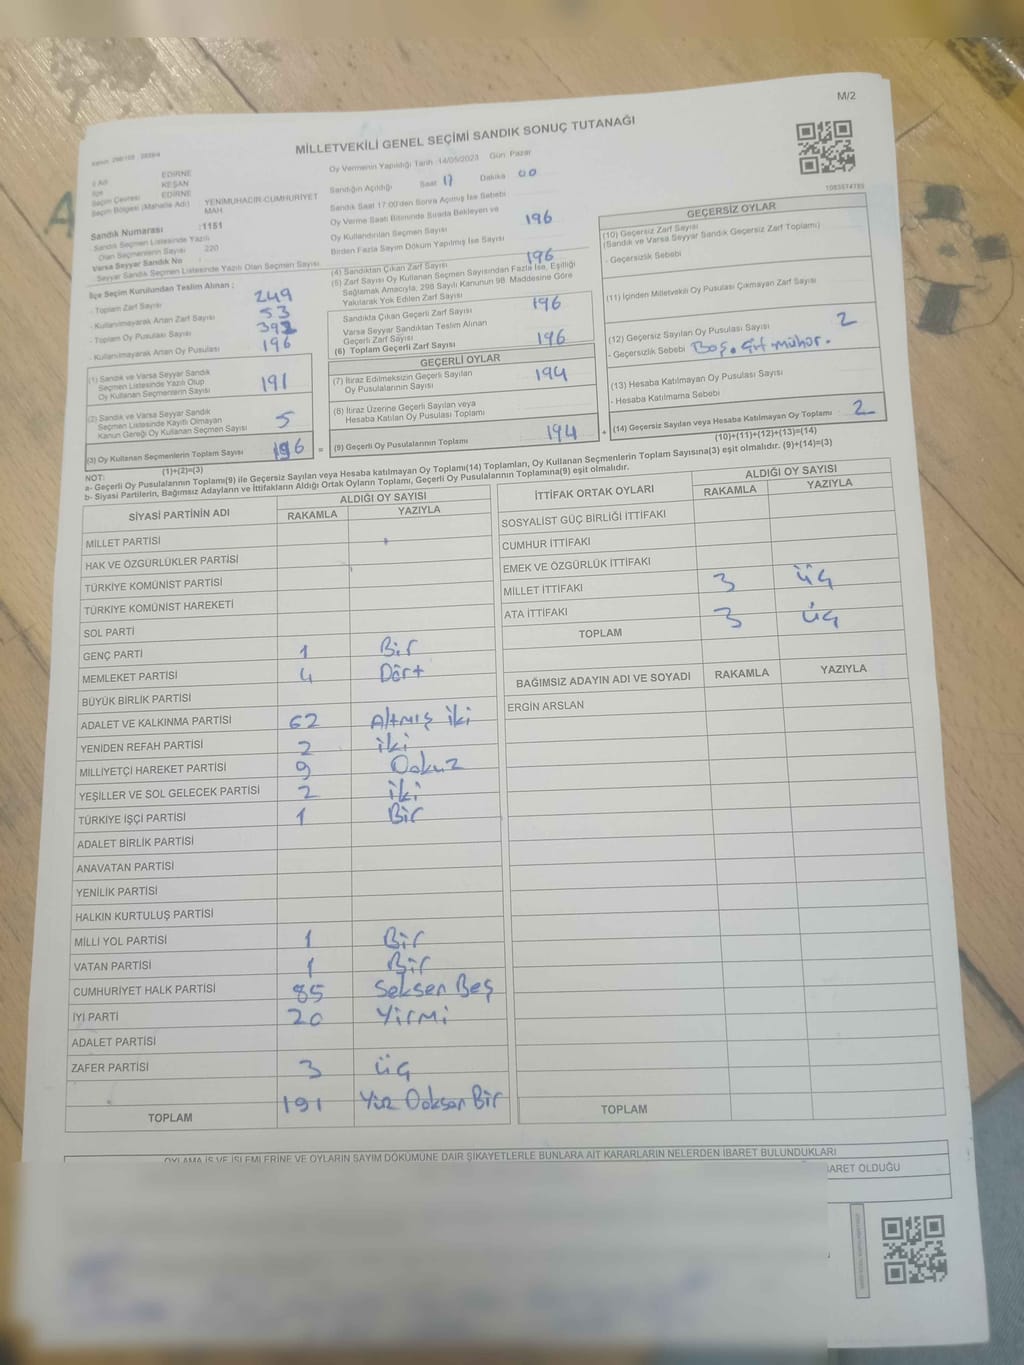 M/2
MİLLETVEKİLİ GENEL SEÇİMİ SANDIK SONUÇ TUTANAĞI
Oy Vermenin Yapıldığı Tarih :14/05/2023 Gün: Pazar
İl Adı EDİRNE
İlçe KEŞAN
Seçim Çevresi EDİRNE
Seçim Bölgesi (Mahalle Adı) YENİMUHACİR-CUMHURİYET MAH.
Sandık Numarası :1151
Sandık Seçmen Listesinde Yazılı
Olan Seçmenlerin Sayısı 220
Varsa Seyyar Sandık No
Seyyar Sandık Seçmen Listesinde Yazılı Olan Seçmen Sayısı
İlçe Seçim Kurulundan Teslim Alınan ;
- Toplam Zarf Sayısı 249
- Kullanılmayarak Artan Zarf Sayısı 53
- Toplam Oy Pusulası Sayısı 392
- Kullanılmayarak Artan Oy Pusulası 196
(1) Sandık ve Varsa Seyyar Sandık
Seçmen Listesinde Yazılı Olup
Oy Kullanan Seçmenlerin Sayısı 191
(2) Sandık ve Varsa Seyyar Sandık
Seçmen Listesinde Kayıtlı Olmayan
Kanun Gereği Oy Kullanan Seçmen Sayısı 5
(3) Oy Kullanan Seçmenlerin Toplam Sayısı 196
(1)+(2)=(3)
Sandığın Açıldığı Saat 17 Dakika 00
Sandık Saat 17:00'den Sonra Açılmış İse Sebebi
Oy Verme Saati Bitiminde Sırada Bekleyen ve
Oy Kullandırılan Seçmen Sayısı 196
Birden Fazla Sayım Döküm Yapılmış İse Sayısı
(4) Sandıktan Çıkan Zarf Sayısı 196
(5) Zarf Sayısı Oy Kullanan Seçmen Sayısından Fazla İse, Eşitliği
Sağlamak Amacıyla, 298 Sayılı Kanunun 98. Maddesine Göre
Yakılarak Yok Edilen Zarf Sayısı
Sandıkta Çıkan Geçerli Zarf Sayısı 196
Varsa Seyyar Sandıktan Teslim Alınan
Geçerli Zarf Sayısı
(6) Toplam Geçerli Zarf Sayısı 196
GEÇERLİ OYLAR
(7) İtiraz Edilmeksizin Geçerli Sayılan
Oy Pusulalarının Sayısı 194
(8) İtiraz Üzerine Geçerli Sayılan veya
Hesaba Katılan Oy Pusulası Toplamı
= (9) Geçerli Oy Pusulalarının Toplamı 194 +
1083574785
GEÇERSİZ OYLAR
(10) Geçersiz Zarf Sayısı
(Sandık ve Varsa Seyyar Sandık Geçersiz Zarf Toplamı)
- Geçersizlik Sebebi
(11) İçinden Milletvekili Oy Pusulası Çıkmayan Zarf Sayısı
(12) Geçersiz Sayılan Oy Pusulası Sayısı 2
- Geçersizlik Sebebi Boş. Çift mühür.
(13) Hesaba Katılmayan Oy Pusulası Sayısı
- Hesaba Katılmama Sebebi
(14) Geçersiz Sayılan veya Hesaba Katılmayan Oy Toplamı : 2
(10)+(11)+(12)+(13)=(14)
NOT:
a- Geçerli Oy Pusulalarının Toplamı(9) ile Geçersiz Sayılan veya Hesaba katılmayan Oy Toplamı(14) Toplamları, Oy Kullanan Seçmenlerin Toplam Sayısına(3) eşit olmalıdır. (9)+(14)=(3)
b- Siyasi Partilerin, Bağımsız Adayların ve İttifakların Aldığı Ortak Oyların Toplamı, Geçerli Oy Pusulalarının Toplamına(9) eşit olmalıdır.
SİYASİ PARTİNİN ADI ALDIĞI OY SAYISI
RAKAMLA YAZIYLA
MİLLET PARTİSİ
HAK VE ÖZGÜRLÜKLER PARTİSİ
TÜRKİYE KOMÜNİST PARTİSİ
TÜRKİYE KOMÜNİST HAREKETİ
SOL PARTİ
GENÇ PARTİ 1 Bir
MEMLEKET PARTİSİ 4 Dört
BÜYÜK BİRLİK PARTİSİ
ADALET VE KALKINMA PARTİSİ 62 Altmış iki
YENİDEN REFAH PARTİSİ 2 iki
MİLLİYETÇİ HAREKET PARTİSİ 9 Dokuz
YEŞİLLER VE SOL GELECEK PARTİSİ 2 iki
TÜRKİYE İŞÇİ PARTİSİ 1 Bir
ADALET BİRLİK PARTİSİ
ANAVATAN PARTİSİ
YENİLİK PARTİSİ
HALKIN KURTULUŞ PARTİSİ
MİLLİ YOL PARTİSİ 1 Bir
VATAN PARTİSİ 1 Bir
CUMHURİYET HALK PARTİSİ 85 Seksen Beş
İYİ PARTİ 20 Yirmi
ADALET PARTİSİ
ZAFER PARTİSİ 3 üç
TOPLAM 191 Yüz Doksan Bir
İTTİFAK ORTAK OYLARI ALDIĞI OY SAYISI
RAKAMLA YAZIYLA
SOSYALİST GÜÇ BİRLİĞİ İTTİFAKI
CUMHUR İTTİFAKI
EMEK VE ÖZGÜRLÜK İTTİFAKI
MİLLET İTTİFAKI 3 üç
ATA İTTİFAKI 3 üç
TOPLAM
BAĞIMSIZ ADAYIN ADI VE SOYADI RAKAMLA YAZIYLA
ERGİN ARSLAN
TOPLAM
OYLAMA İŞ VE İŞLEMLERİNE VE OYLARIN SAYIM DÖKÜMÜNE DAİR ŞİKAYETLERLE BUNLARA AİT KARARLARIN NELERDEN İBARET BULUNDUKLARI
İBARET OLDUĞU